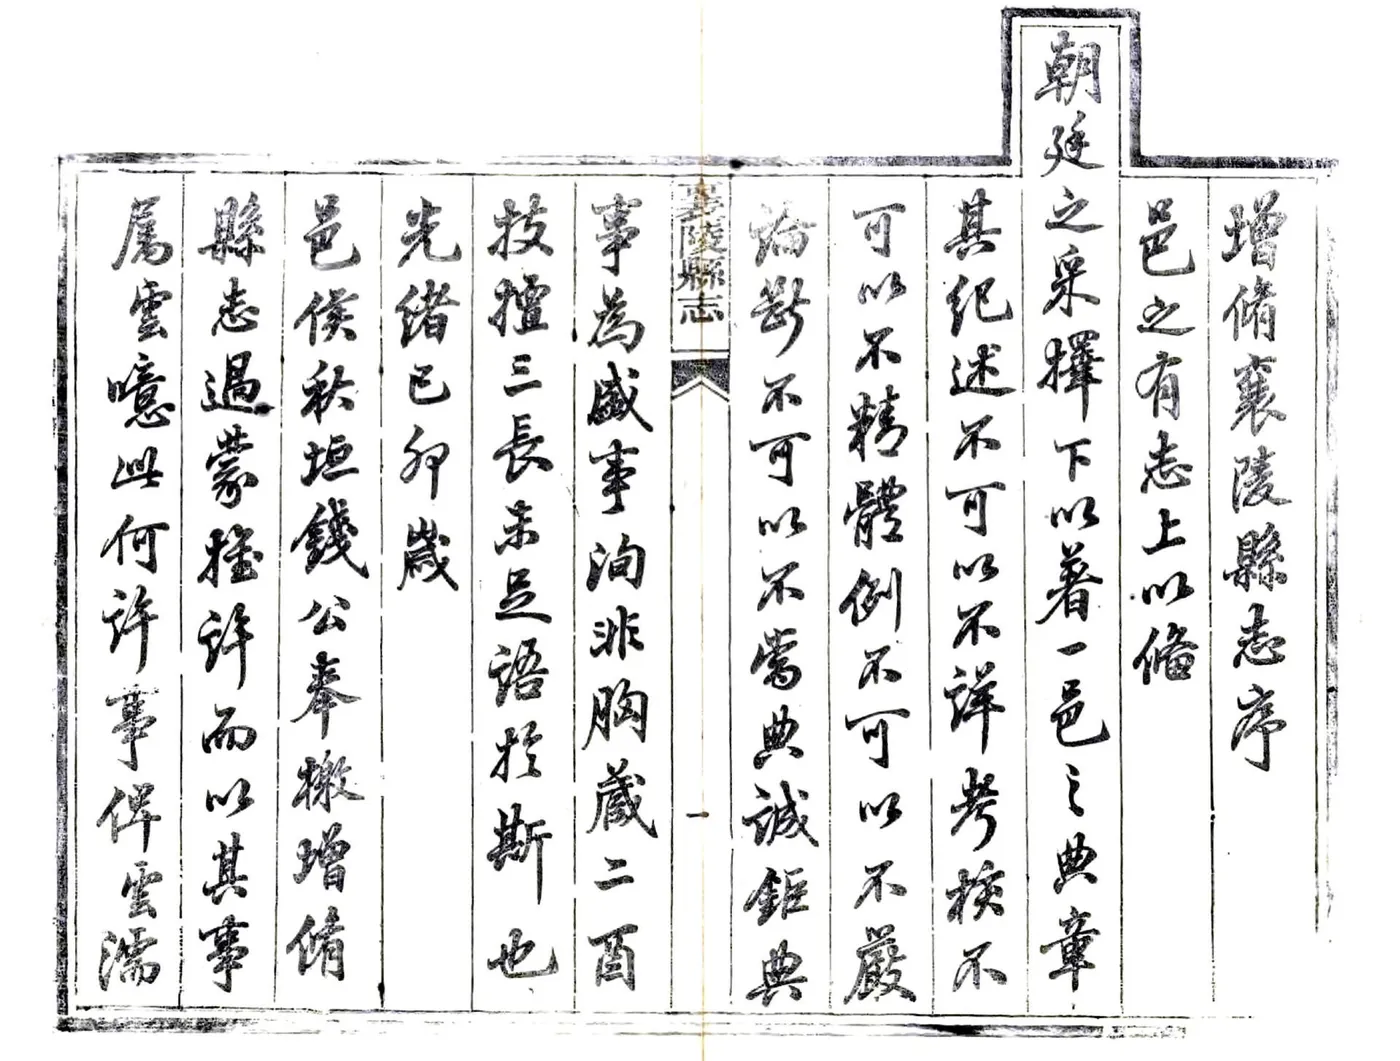 增脩襄陵縣志序
邑之有志上以備
朝廷之采擇下以著一邑之典章
其紀述不可以不詳考核不
可以不精體例不可以不嚴
論斷不可以不當典誠鉅典
襄陵縣志
一
事為盛事洵非胸蔵二酉
技擅三長未足語於斯也
光緒己卯歲
邑侯秋垣錢公奉檄增脩
縣志過蒙推許而以其事
属雲噫此何許事俾雲濡